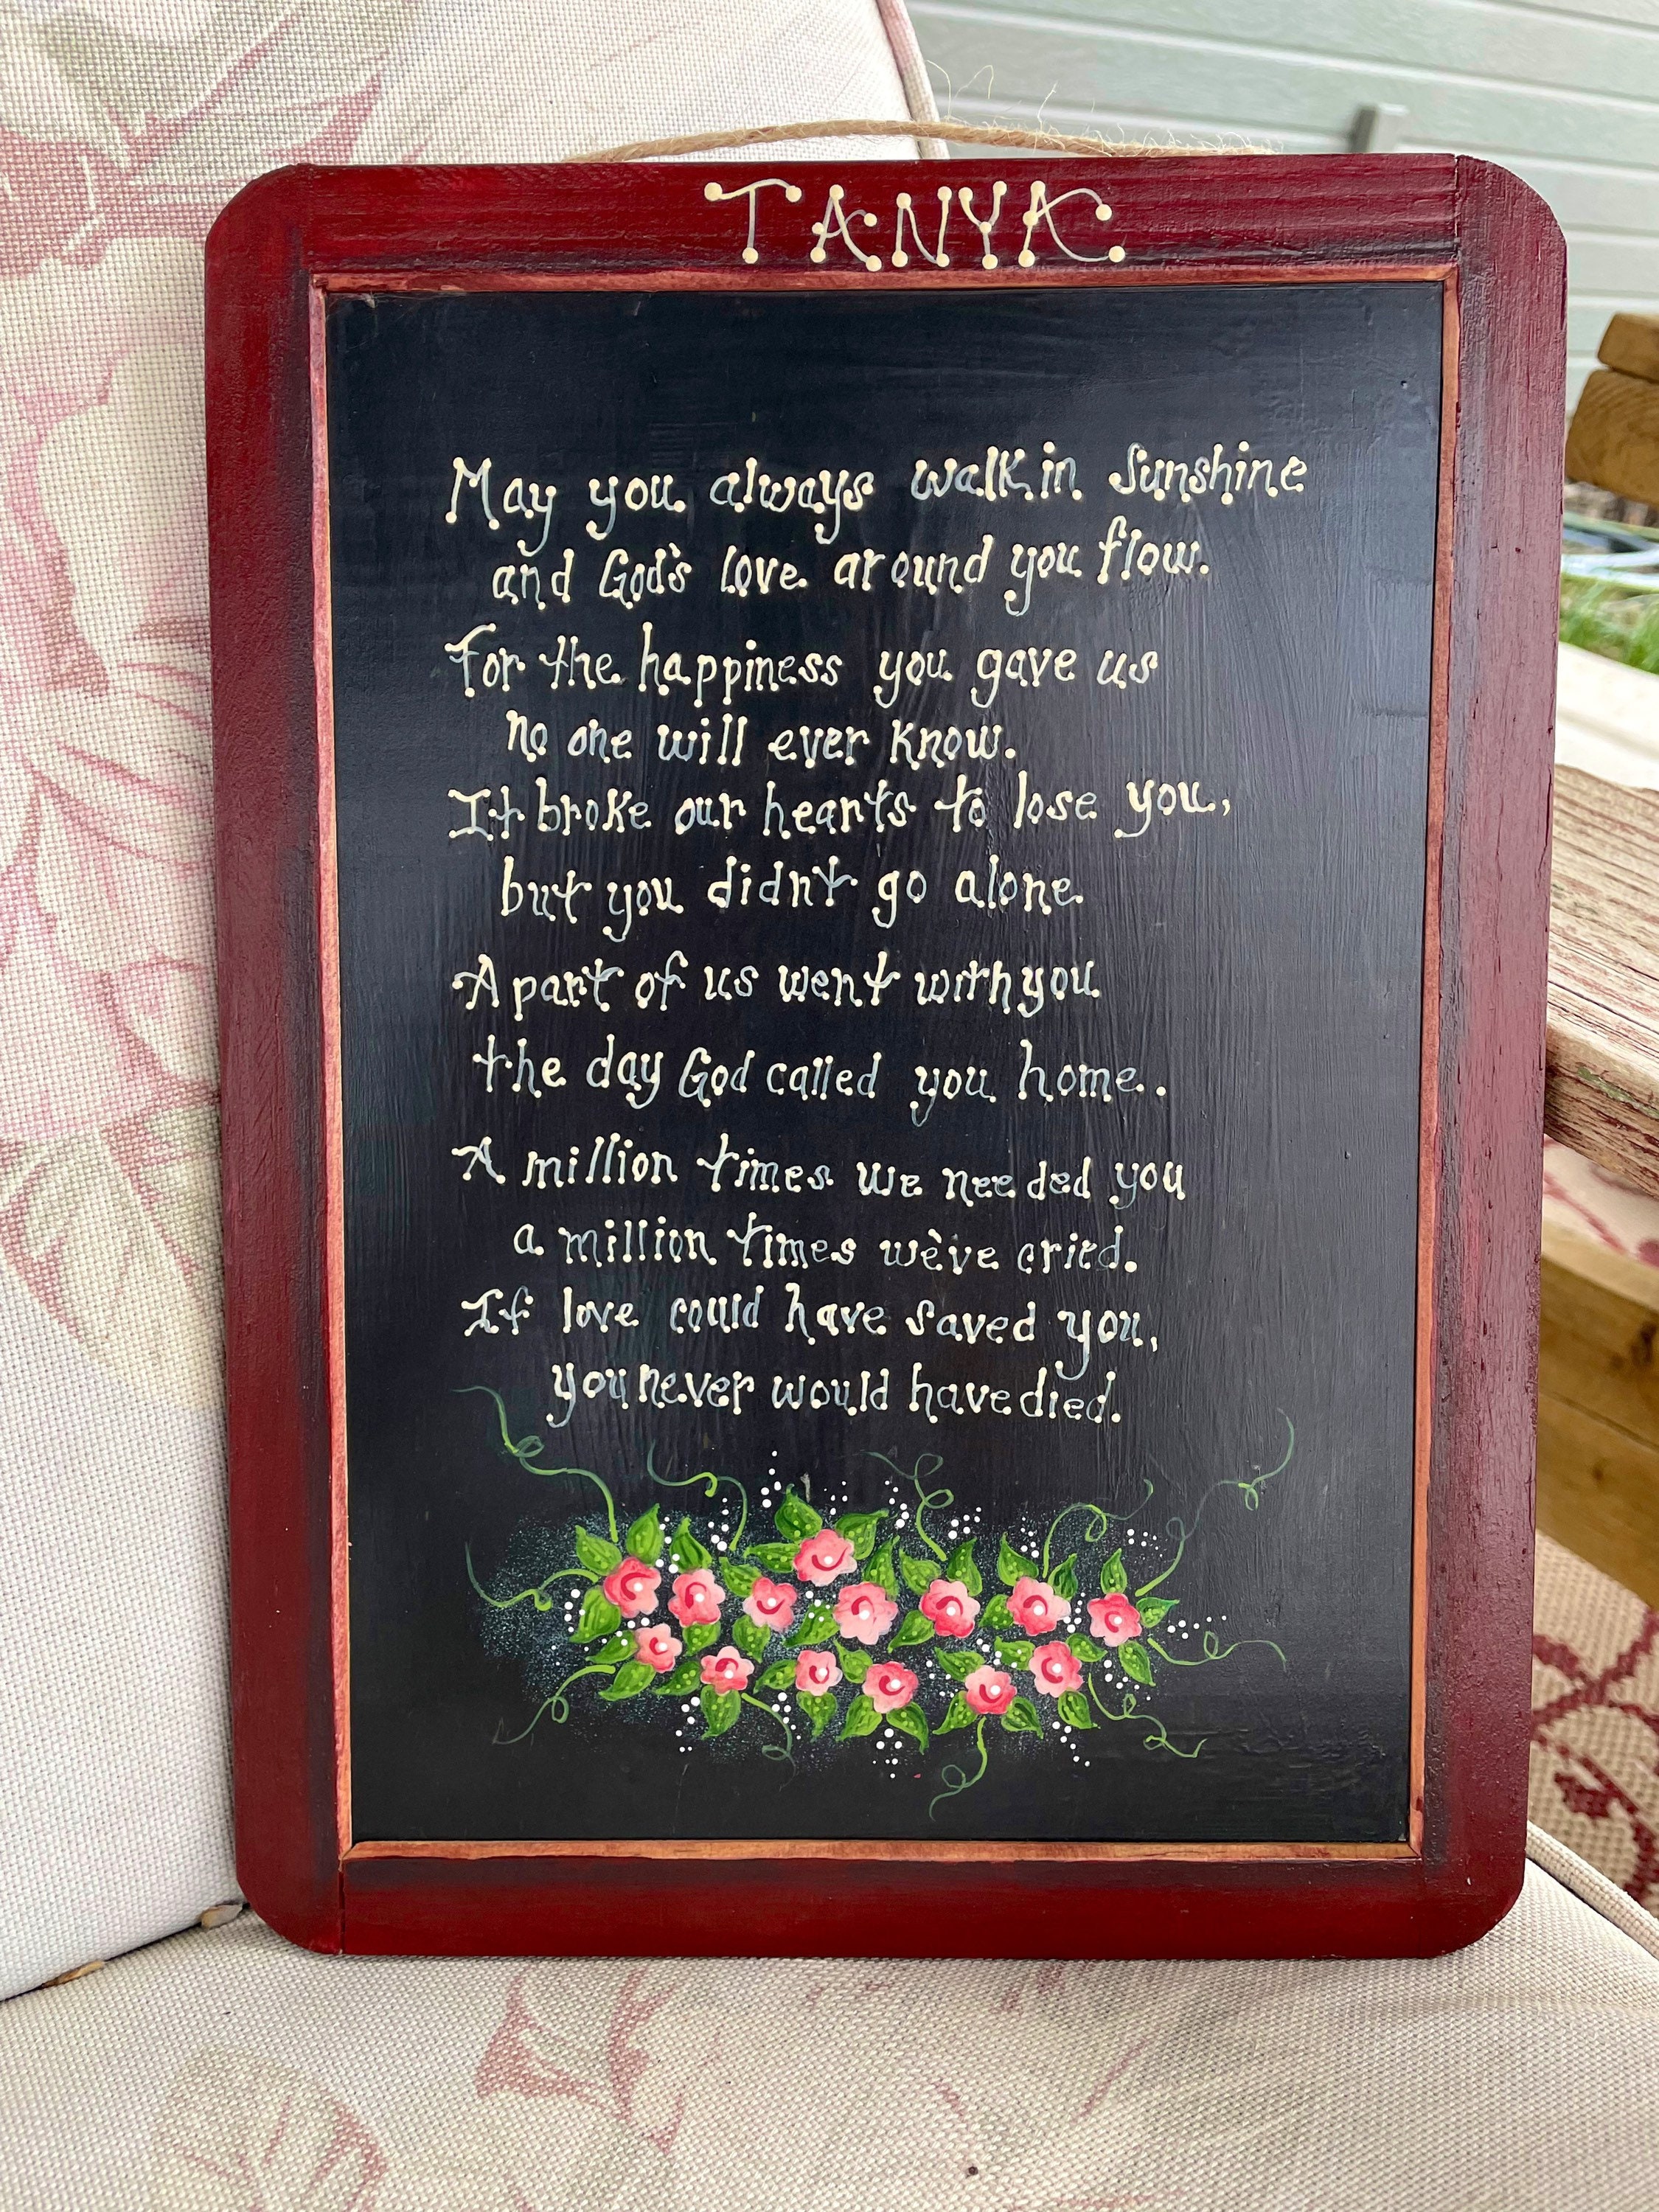 TANYA
May you always walk in Sunshine
and God's love around you flow.
For the happiness you gave us
no one will ever know.
It broke our hearts to lose you,
but you didn't go alone.
A part of us went with you
the day God called you home..
A million times we needed you
a million times we've cried.
If love could have saved you,
you never would have died.